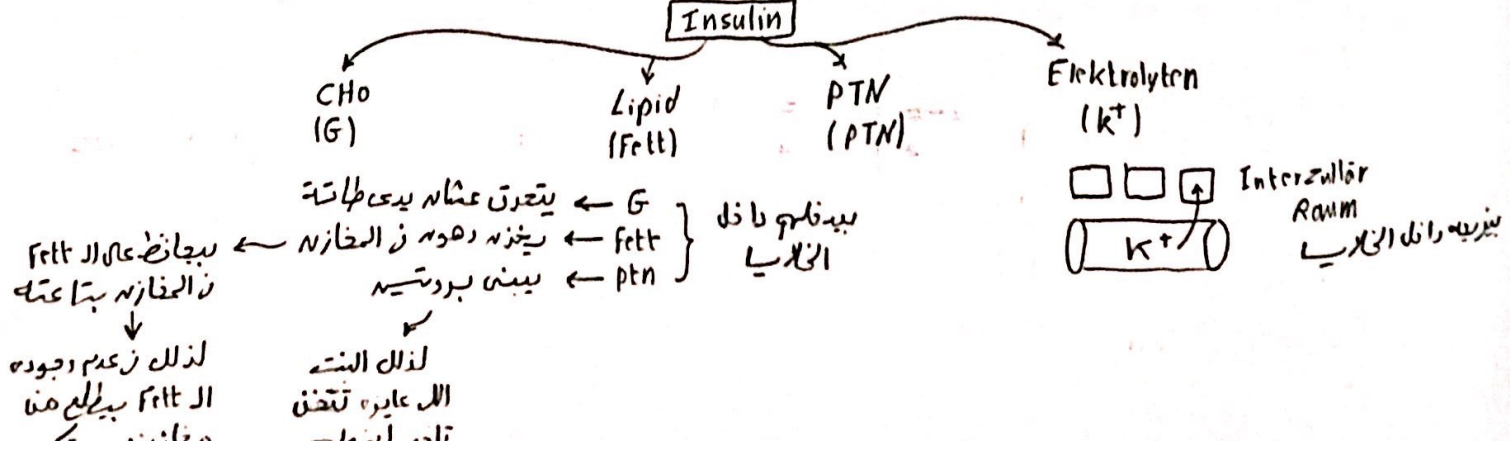 Insulin
CHO
(G)
Lipid
(Fett)
PTN
(PTN)
Elektrolyten
(K+)
Interzullär
Raum
K+
بيزيحه داخل الخلايا
بيدخلهم داخل
الخلايا
G ← يتحرق عشان يدى طاقة
Fett ← يخزنه دهون فى المخازن ← بيحافظ على ال Fett
فى المخازن بتاعته
ptn ← يبنى بروتين
لذلك فى عدم وجوده
ال Fett بيطلع من
لذلك البنت
اللى عايزه تتخن